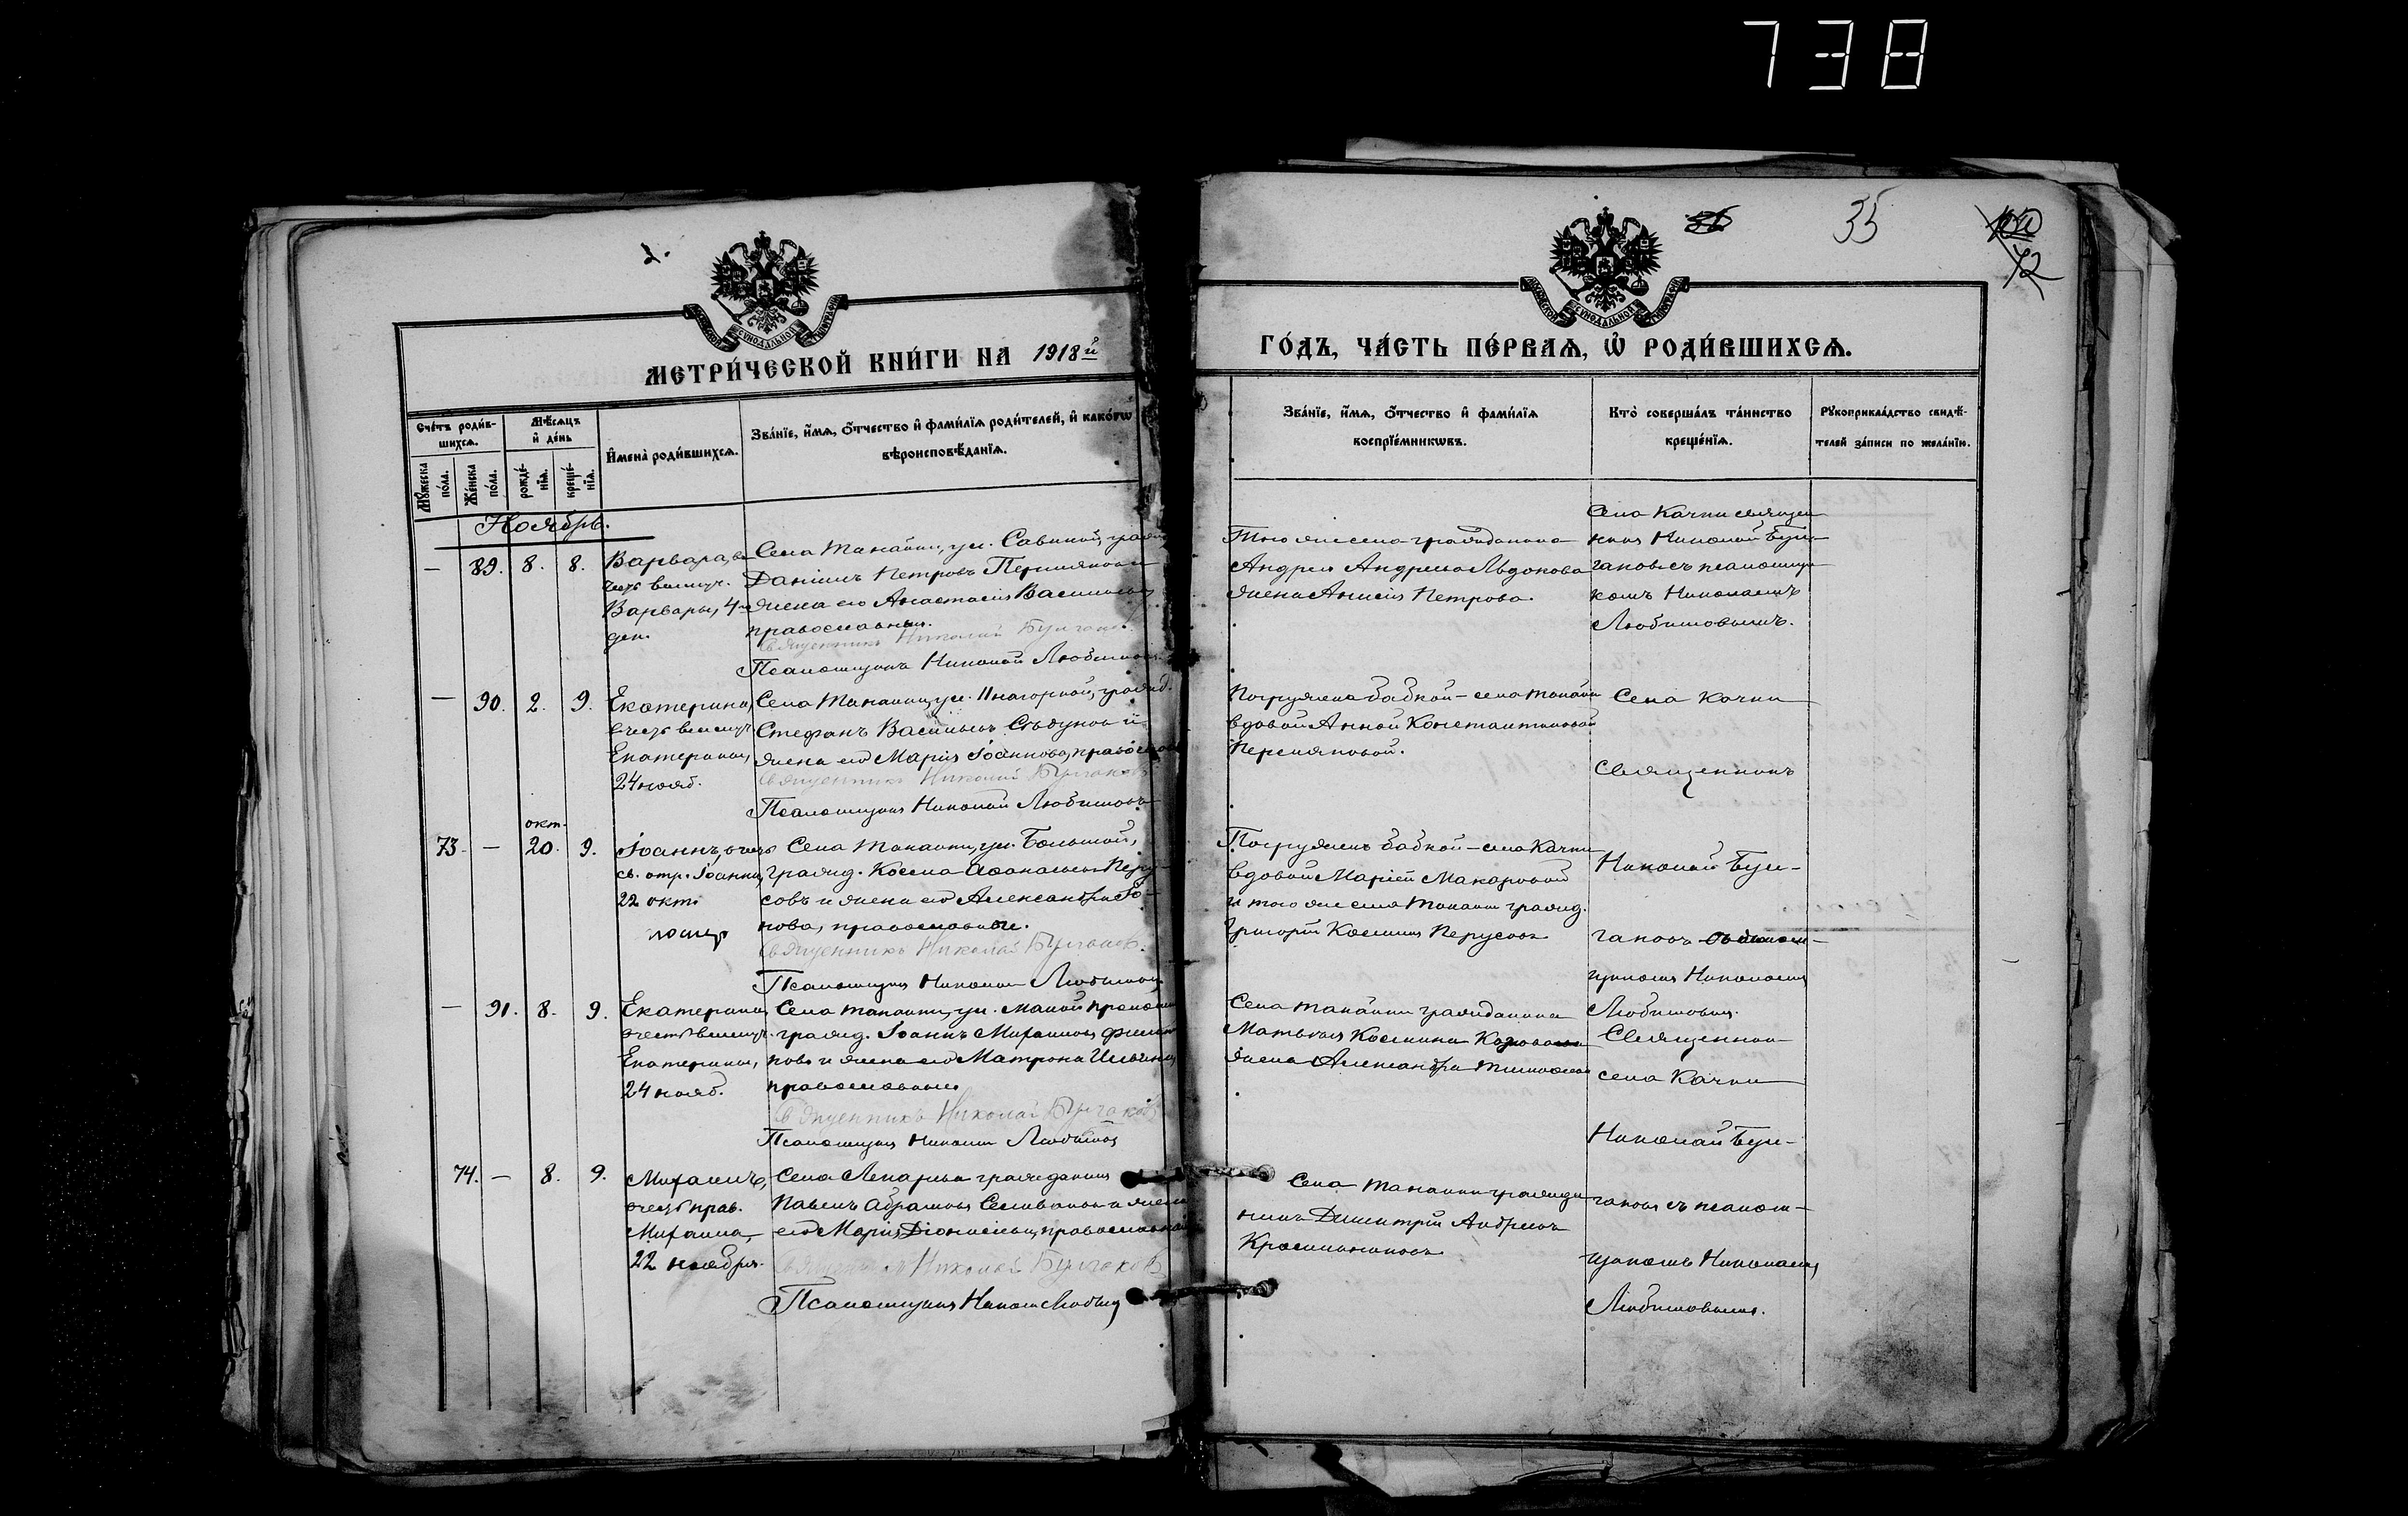 738
2.
35
72
МЕТРИ́ЧЕСКОЙ КНИ́ГИ НА 1918й
ГО́ДЪ, ЧА́СТЬ ПЕ́РВАЯ, Ѽ РОДИ́ВШИХСЯ.
Сче́тъ роди́в-
шихся.
Мѣ́сяцъ
и́ де́нь
Мꙋ́жеска по́ла.
Же́нска по́ла.
рожде́-
нїя.
креще́-
нїя.
И҆мена̀ роди́вшихся.
Зва́нїе, и҆́мя, ѻ҆́тчество и҆ фами́лїя роди́телей, и҆ како́гѡ
вѣроисповѣ́данїя.
Зва́нїе, и҆́мя, ѻ҆́тчество и҆ фами́лїя
воспрїе́мникѡвъ.
Кто̀ соверша́лъ та́инство
креще́нїя.
Рꙋкоприкла́дство свидѣ́-
телей за́писи по жела́нїю.
Ноябрь.
— 89. 8. 8.
Варвара, въ
честь великмуч.
Варвары, 4
дек.
Села Танайки, ул. Савиной, гражд.
Данiилъ Петровъ Пермяковъ и
жена его Анастасiя Васильева,
православные.
Священникъ Николай Булгаковъ.
Псаломщикъ Николай Любимовъ
Того же села гражданина
Андрея Андреева Авдокова
жена Анисiя Петрова.
Села Качки священ-
никъ Николай Бул-
гаковъ съ псаломщи-
комъ Николаемъ
Любимовымъ.
— 90. 2. 9.
Екатерина,
въ честь великмуч.
Екатерины,
24 нояб.
Села Танайки, ул. Нагорной, гражд.
Стефанъ Васильевъ Сѣдуновъ и
жена его Марiя Iоаннова, православ.
Священникъ Николай Булгаковъ
Псаломщикъ Николай Любимовъ
Погружена бабкой – села Танайки
вдовой Анной Константиновой
Пермяковой.
Села Качки
священникъ
73. — окт. 20. 9.
Iоаннъ, въ честь
св. отр. Iоанна,
22 окт.
помер
Села Танайки, ул. Большой,
гражд. Косма Аѳанасьевъ Перу-
совъ и жена его Александра Iо-
нова, православные.
Священникъ Николай Булгаковъ.
Псаломщикъ Николай Любимовъ
Погруженъ бабкой – села Качки
вдовой Марiей Макаровой
и того же села Танайки гражд.
Григорiй Косминъ Перусовъ
Николай Бул-
гаковъ съ псалом-
щикомъ Николаемъ
Любимовымъ.
— 91. 8. 9.
Екатерина,
въ честь великмуч.
Екатерины,
24 нояб.
Села Танайки, ул. Малой
гражд. Iоаннъ Михаиловъ
повъ и жена его Матрона Ильина,
православные
Священникъ Николай Булгаковъ
Псаломщикъ Николай Любимовъ
Села Танайки гражданина
Матвѣя Космина
жена Александра Тимоѳеева
Священникъ
села Качки
Николай Бул-
74. — 8. 9.
Михаилъ,
въ честь прав.
Михаила,
22 ноября.
Села Лекарева гражданинъ
Павелъ Абрамовъ Селивановъ и жена
его Марiя Дiонисiева, православные
Священникъ Николай Булгаковъ
Псаломщикъ Николай Любимовъ
Села Танайки гражда-
нинъ Димитрiй Андреевъ
Красильниковъ
гаковъ съ псалом-
щикомъ Николаемъ
Любимовымъ.